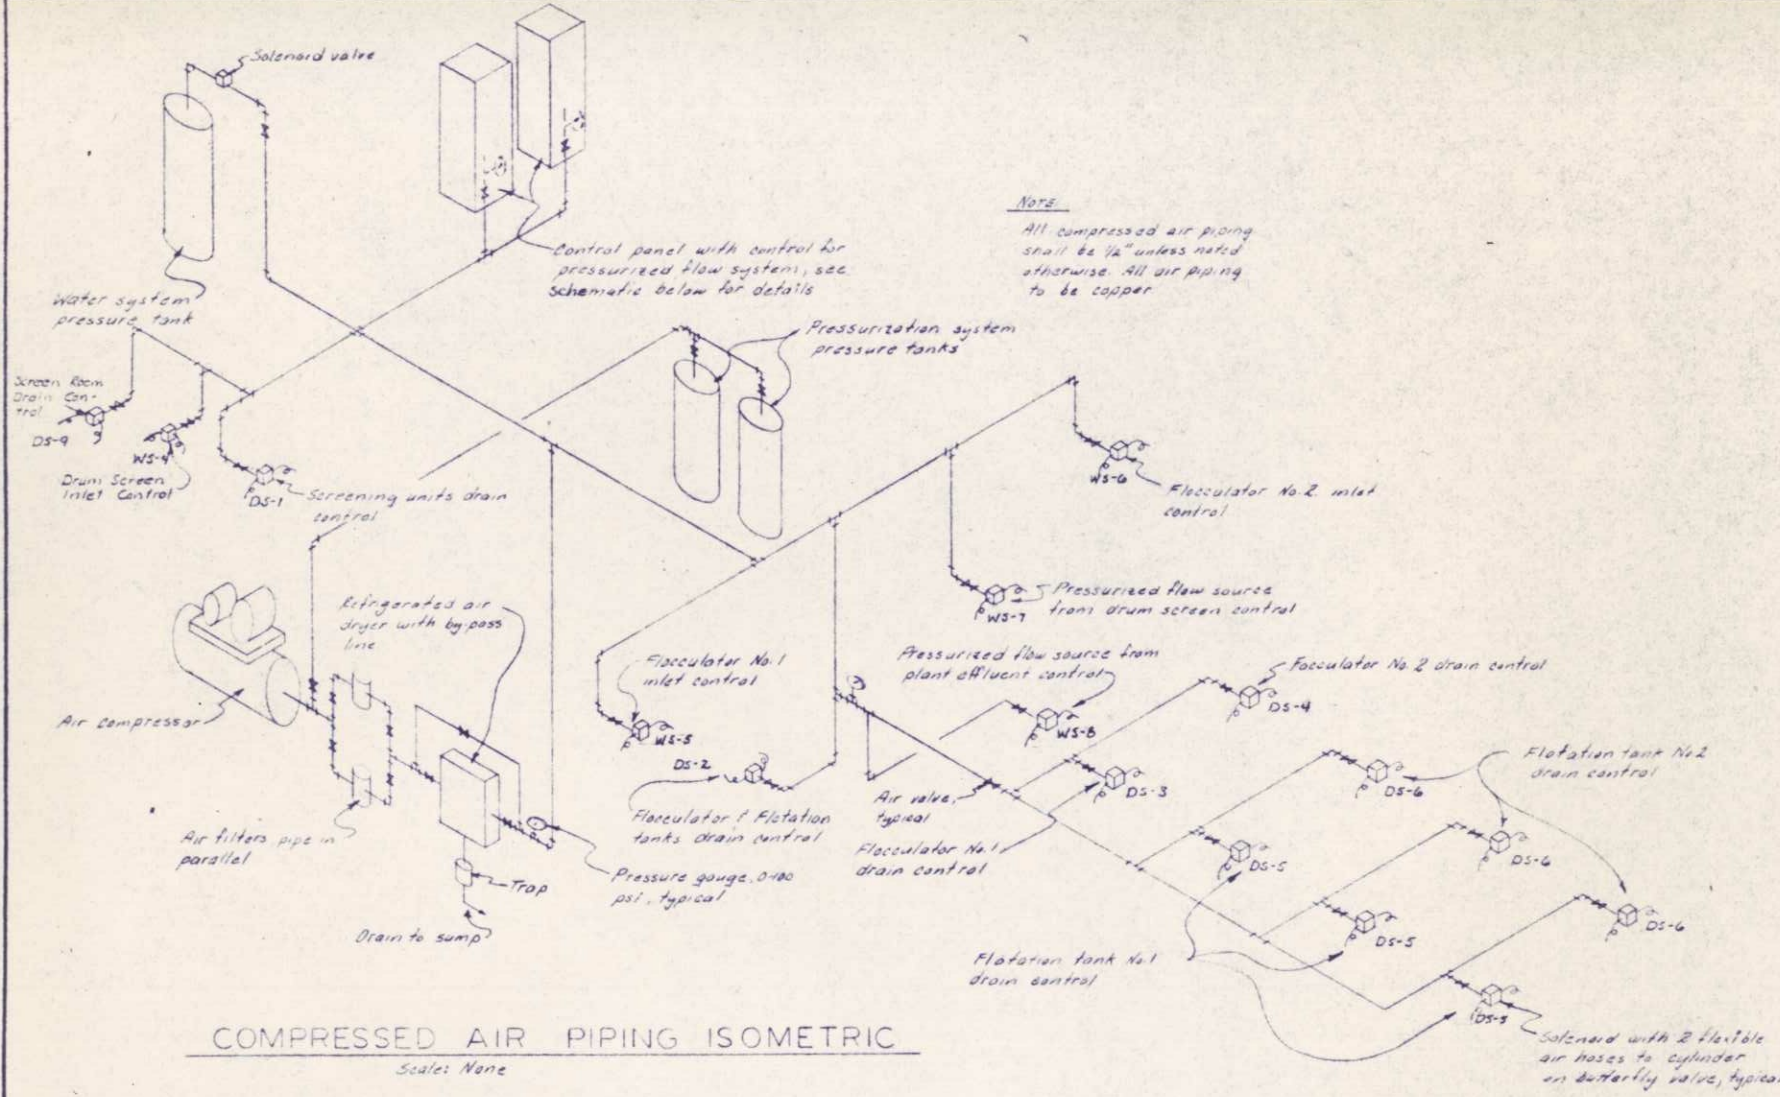 Solenoid valve
Control panel with control for
pressurized flow system, see
schematic below for details
NOTE:
All compressed air piping
shall be 1/2" unless noted
otherwise. All air piping
to be copper
Water system
pressure tank
Pressurization system
pressure tanks
Screen Room
Drain Con-
trol
DS-9
WS-4
Drum Screen
Inlet Control
DS-1
Screening units drain
control
WS-6
Flocculator No. 2 inlet
control
Refrigerated air
dryer with by-pass
line
WS-7
Pressurized flow source
from drum screen control
Flocculator No. 1
inlet control
Pressurized flow source from
plant effluent control
Focculator No. 2 drain control
DS-4
Air compressor
WS-5
WS-8
DS-2
DS-3
Flotation tank No. 2
drain control
DS-6
Air valve,
typical
Flocculator & Flotation
tanks drain control
Flocculator No. 1
drain control
Air filters pipe in
parallel
DS-5
DS-6
Trap
Pressure gauge, 0-100
psi, typical
Drain to sump
DS-5
DS-6
Flotation tank No. 1
drain control
DS-5
Solenoid with 2 flexible
air hoses to cylinder
on butterfly valve, typical
COMPRESSED AIR PIPING ISOMETRIC
Scale: None